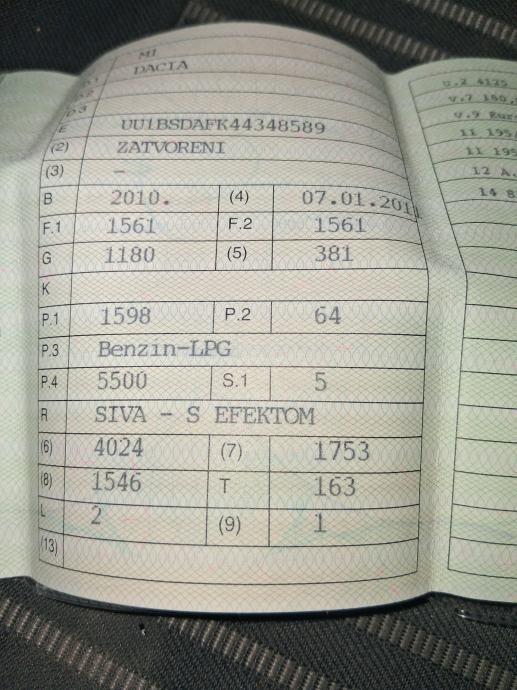 M1
DACIA
D.3
E UU1BSDAFK44348589
(2) ZATVORENI
(3) –
B 2010. (4) 07.01.2011
F.1 1561 F.2 1561
G 1180 (5) 381
K
P.1 1598 P.2 64
P.3 Benzin-LPG
P.4 5500 S.1 5
R SIVA - S EFEKTOM
(6) 4024 (7) 1753
(8) 1546 T 163
L 2 (9) 1
(13)
V.2 4125
V.7 180,
V.9
11 195/
11 195
12 A.
14 8